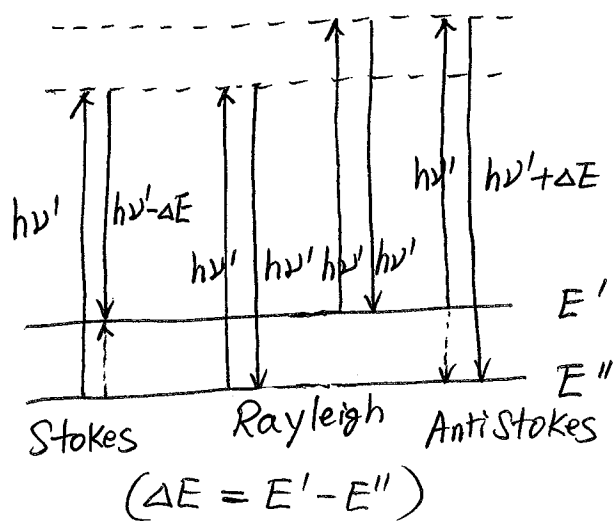 hν' hν'-ΔE hν' hν' hν' hν' hν' hν'+ΔE
E'
E"
Stokes Rayleigh AntiStokes
(ΔE = E' - E")